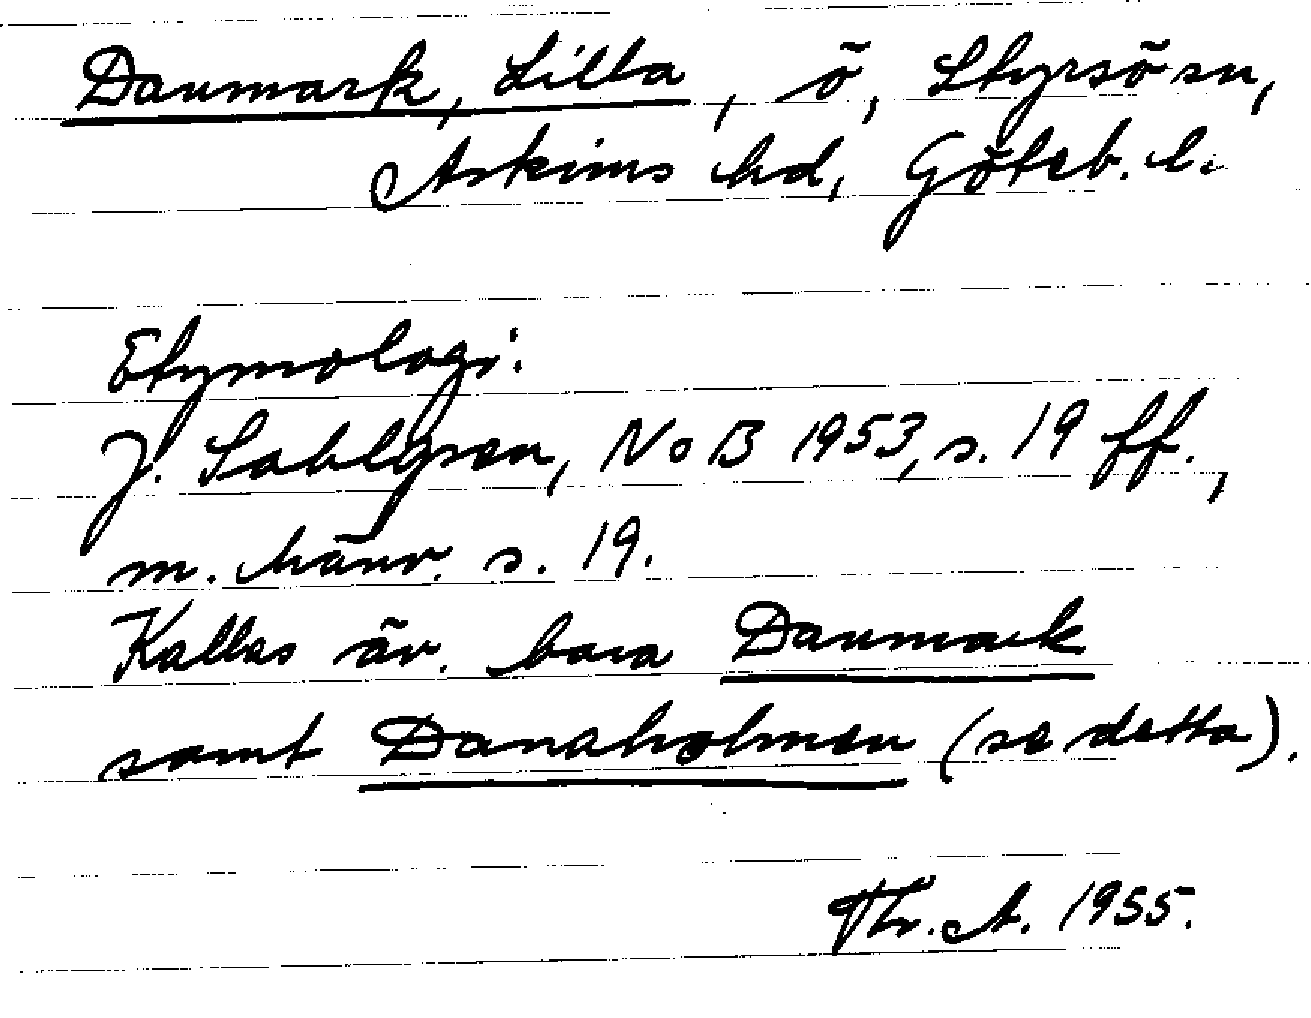 Danmark, Lilla, ö, Styrsö sn,
Askims hd, Göteb. l.
Etymologi:
J. Sahlgren, NoB 1953, s. 19 ff.,
m. hänv. s. 19.
Kallas äv. bara Danmark
samt Danaholmen (se detta).
Thr. A. 1955.